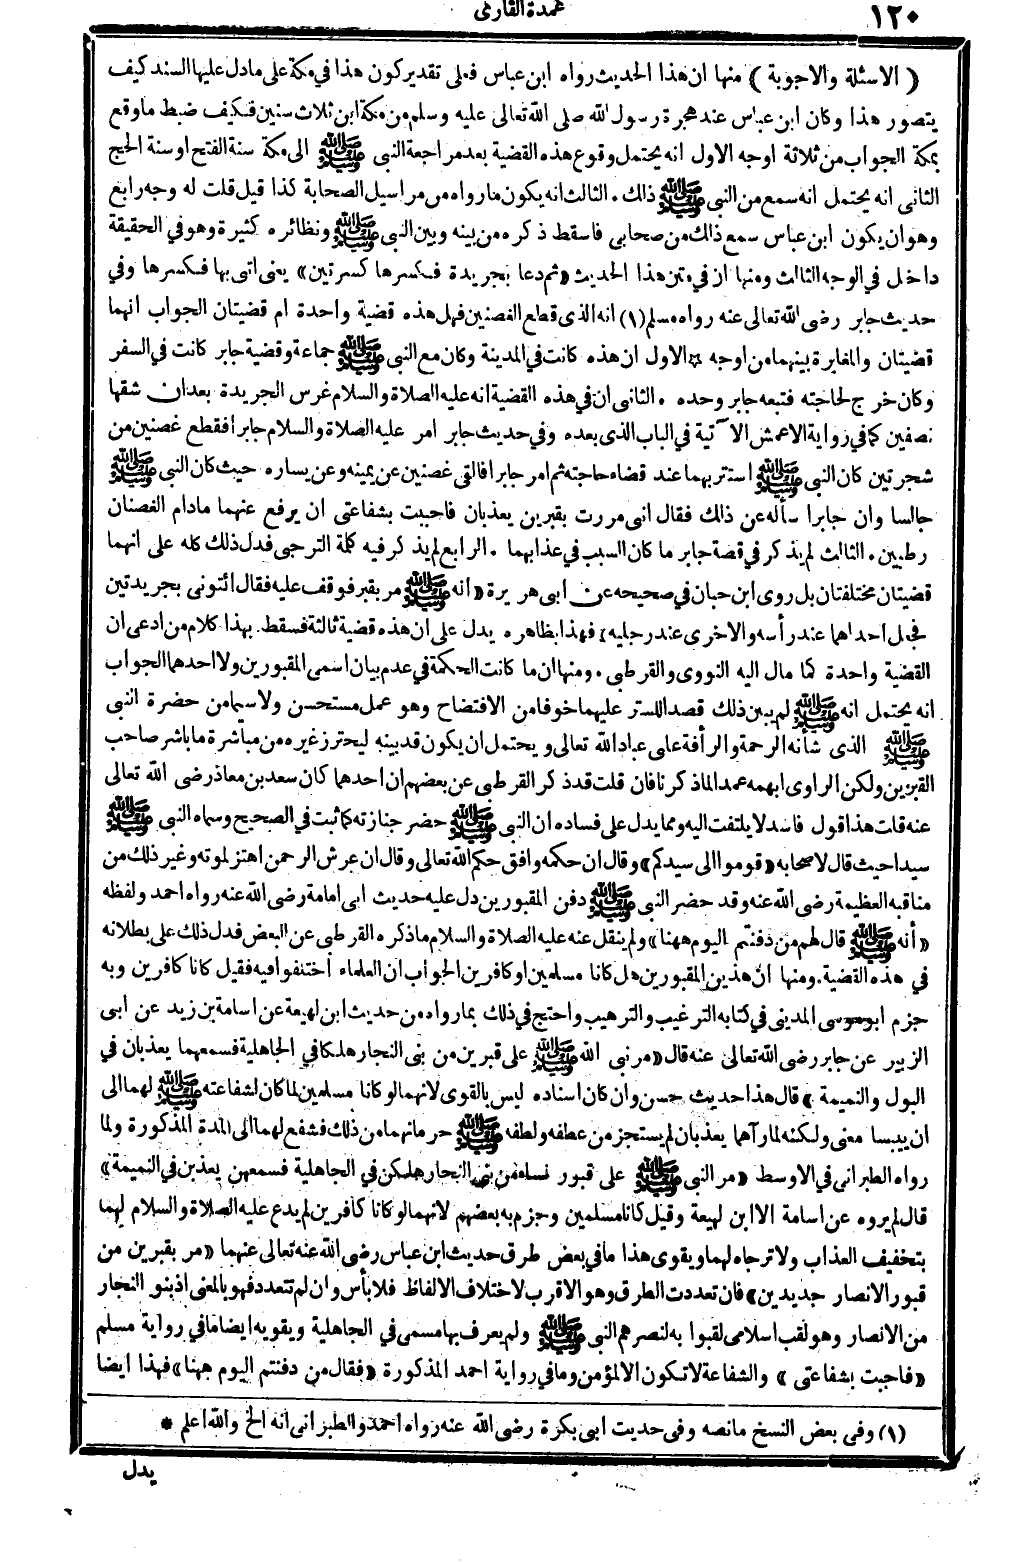 ١٢٠
عمدة القارئ
( الاسئلة والاجوبة ) منها ان هذا الحديث رواه ابن عباس فعلى تقدير كون هذا في مكة على ما دل عليها السند كيف
يتصور هذا وكان ابن عباس عند هجرة رسول الله صلى الله تعالى عليه وسلم من مكة ابن ثلاث سنين فكيف ضبط ما وقع
بمكة الجواب من ثلاثة اوجه الاول انه يحتمل وقوع هذه القضية بعد مراجعة النبي ﷺ الى مكة سنة الفتح او سنة الحج
الثانى انه يحتمل انه سمع من النبي ﷺ ذلك . الثالث انه يكون ما رواه من مراسيل الصحابة كذا قيل قلت له وجه رابع
وهو ان يكون ابن عباس سمع ذلك من صحابى فاسقط ذكره من بينه وبين النبي ﷺ ونظائره كثيرة وهو في الحقيقة
داخل في الوجه الثالث ومنها ان في متن هذا الحديث «ثم دعا بجريدة فكسرها كسرتين» يعنى اتى بها فكسرها وفي
حديث جابر رضى الله تعالى عنه رواه مسلم (١) انه الذى قطع الغصنين فهل هذه قضية واحدة ام قضيتان الجواب انهما
قضيتان والمغايرة بينهما من اوجه * الاول ان هذه كانت في المدينة وكان مع النبي ﷺ جماعة وقضية جابر كانت في السفر
وكان خرج لحاجته فتبعه جابر وحده . الثانى ان في هذه القضية انه عليه الصلاة والسلام غرس الجريدة بعد ان شقها
نصفين كما في رواية الاعمش الآتية في الباب الذى بعده وفي حديث جابر امر عليه الصلاة والسلام جابرا فقطع غصنين من
شجرتين كان النبي ﷺ استتر بهما عند قضاء حاجته ثم امر جابرا فالقى غصنين عن يمينه وعن يساره حيث كان النبي ﷺ
جالسا وان جابرا سأله عن ذلك فقال انى مررت بقبرين يعذبان فاحببت بشفاعتى ان يرفع عنهما مادام الغصنان
رطبين . الثالث لم يذكر في قصة جابر ما كان السبب في عذابهما . الرابع لم يذكر فيه كلمة الترجى فدل ذلك كله على انهما
قضيتان مختلفتان بل روى ابن حبان في صحيحه عن ابى هريرة «أنه ﷺ مر بقبر فوقف عليه فقال ائتونى بجريدتين
فجعل احداهما عند رأسه والاخرى عند رجليه» فهذا بظاهره يدل على ان هذه قضية ثالثة فسقط بهذا كلام من ادعى ان
القضية واحدة كما مال اليه النووى والقرطبى . ومنها ان ما كانت الحكمة في عدم بيان اسمى المقبورين ولا احدهما الجواب
انه يحتمل انه ﷺ لم يبين ذلك قصدا للستر عليهما خوفا من الافتضاح وهو عمل مستحسن ولاسيما من حضرة النبى
ﷺ الذى شأنه الرحمة والرأفة على عباد الله تعالى ويحتمل ان يكون قد بينه ليحترز غيره من مباشرة ما باشر صاحب
القبرين ولكن الراوى ابهمه عمدا لما ذكرنا فان قلت قد ذكر القرطبى عن بعضهم ان احدهما كان سعد بن معاذ رضى الله تعالى
عنه قلت هذا قول فاسد لا يلتفت اليه ومما يدل على فساده ان النبى ﷺ حضر جنازته كما ثبت في الصحيح وسماه النبى ﷺ
سيدا حيث قال لاصحابه «قوموا الى سيدكم» وقال ان حكمه وافق حكم الله تعالى وقال ان عرش الرحمن اهتز لموته وغير ذلك من
مناقبه العظيمة رضى الله عنه وقد حضر النبى ﷺ دفن المقبورين دل عليه حديث ابى امامة رضى الله عنه رواه احمد ولفظه
«أنه ﷺ قال لهم من دفنتم اليوم ههنا» ولم ينقل عنه عليه الصلاة والسلام ما ذكره القرطبى عن البعض فدل ذلك على بطلانه
في هذه القضية . ومنها ان هذين المقبورين هل كانا مسلمين او كافرين الجواب ان العلماء اختلفوا فيه فقيل كانا كافرين وبه
جزم ابو موسى المدينى في كتابه الترغيب والترهيب واحتج في ذلك بما رواه من حديث ابن لهيعة عن اسامة بن زيد عن ابى
الزبير عن جابر رضى الله تعالى عنه قال «مر نبى الله ﷺ على قبرين من بنى النجار هلكا في الجاهلية فسمعهما يعذبان في
البول والنميمة » قال هذا حديث حسن وان كان اسناده ليس بالقوى لانهما لو كانا مسلمين لما كان لشفاعته ﷺ لهما الى
ان ييبسا معنى ولكنه لما رآهما يعذبان لم يستجز من عطفه ولطفه ﷺ حرمانهما من ذلك فشفع لهما الى المدة المذكورة ولما
رواه الطبرانى في الاوسط «مر النبى ﷺ على قبور نساء من بنى النجار هلكن في الجاهلية فسمعهن يعذبن في النميمة»
قال لم يروه عن اسامة الا ابن لهيعة وقيل كانا مسلمين وجزم به بعضهم لانهما لو كانا كافرين لم يدع عليه الصلاة والسلام لهما
بتخفيف العذاب ولا ترجاه لهما ويقوى هذا ما في بعض طرق حديث ابن عباس رضى الله عنه تعالى عنهما «مر بقبرين من
قبور الانصار جديدين» فان تعددت الطرق وهو الاقرب لاختلاف الالفاظ فلا بأس وان لم تتعدد فهو بالمعنى اذ بنو النجار
من الانصار وهو لقب اسلامى لقبوا به لنصرهم النبى ﷺ ولم يعرف بها مسمى في الجاهلية ويقويه ايضا ما في رواية مسلم
«فاجبت بشفاعتى » والشفاعة لا تكون الا لمؤمن وما في رواية احمد المذكورة «فقال من دفنتم اليوم ههنا» فهذا ايضا
(١) وفى بعض النسخ مانصه وفى حديث ابى بكرة رضى الله عنه رواه احمد والطبرانى انه الخ والله اعلم *
يدل